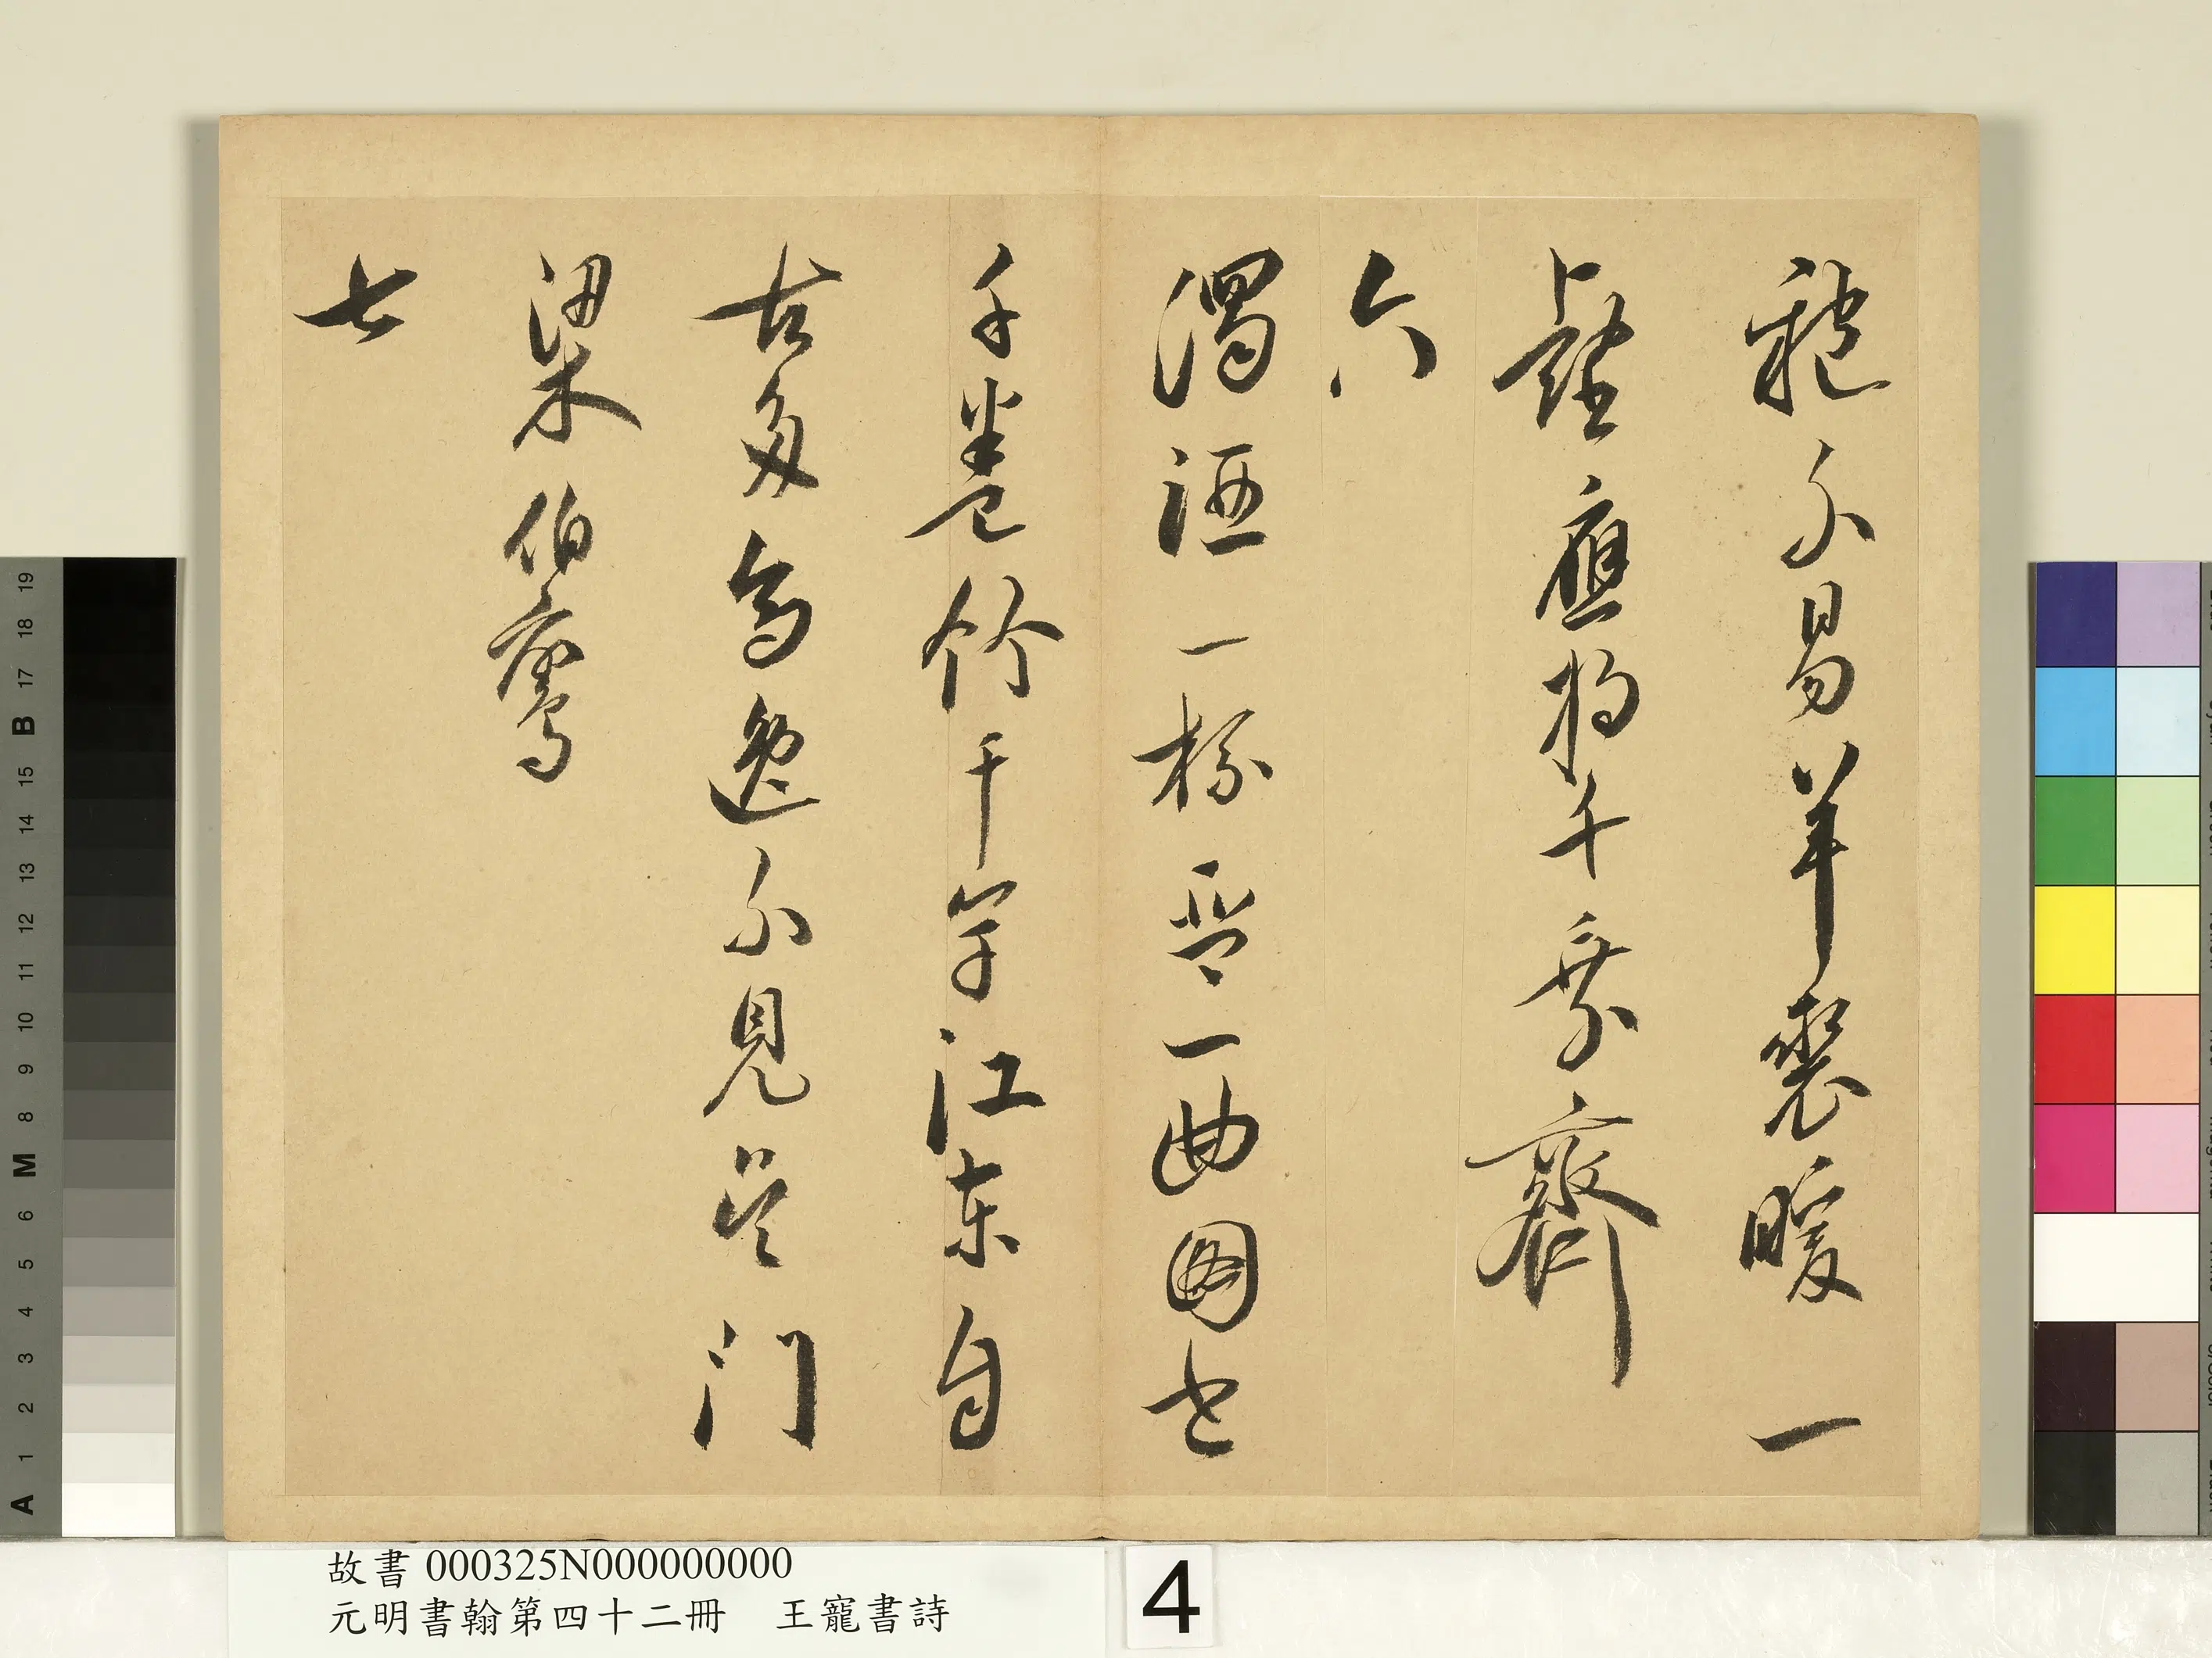 袍不易羊裘暖一
壑應將千乘齊
六
濁酒一杯琴一曲圖書
千卷竹千竿江東自
古多高逸不見吳門
梁伯鸞
七
故書 000325N000000000
元明書翰第四十二冊 王寵書詩
4
A 1 2 3 4 5 6 M 8 9 10 11 12 13 14 15 B 17 18 19